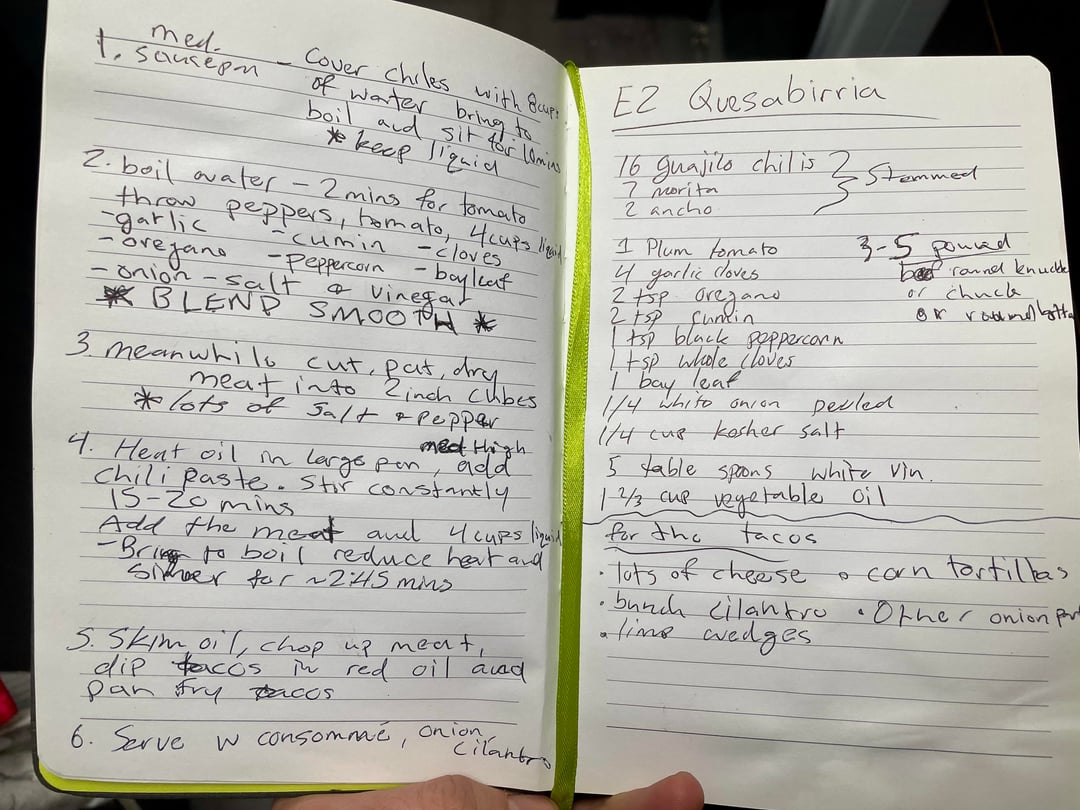 med.
1. sausepn - Cover chiles with 8cups
of water bring to
boil and sit for 10mins
* keep liquid
2. boil water - 2 mins for tomato
throw peppers, tomato, 4cups liquid
-garlic -cumin -cloves
-oregano -peppercorn -bayleaf
-onion - salt & vinegar
* BLEND SMOOTH *
3. meanwhile cut, pat, dry
meat into 2inch cubes
* lots of salt & pepper
4. Heat oil in large pan, med high add
chili paste. Stir constantly
15-20 mins
Add the meat and 4cups liquid
-Bring to boil reduce heat and
simer for ~2:45 mins
5. Skim oil, chop up meat,
dip tacos in red oil and
pan fry tacos
6. Serve w consommé, onion,
cilantro
EZ Quesabirria
16 guajilo chilis
7 morita } Stemmed
2 ancho
1 Plum tomato 3-5 pound
4 garlic cloves round knuckle
2 tsp oregano or chuck
2 tsp cumin or
1 tsp black peppercorn
1 tsp whole cloves
1 bay leaf
1/4 white onion peeled
1/4 cup kosher salt
5 table spoons white vin.
1 2/3 cup vegetable oil
for the tacos
· lots of cheese · corn tortillas
· bunch cilantro · Other onion
· lime wedges